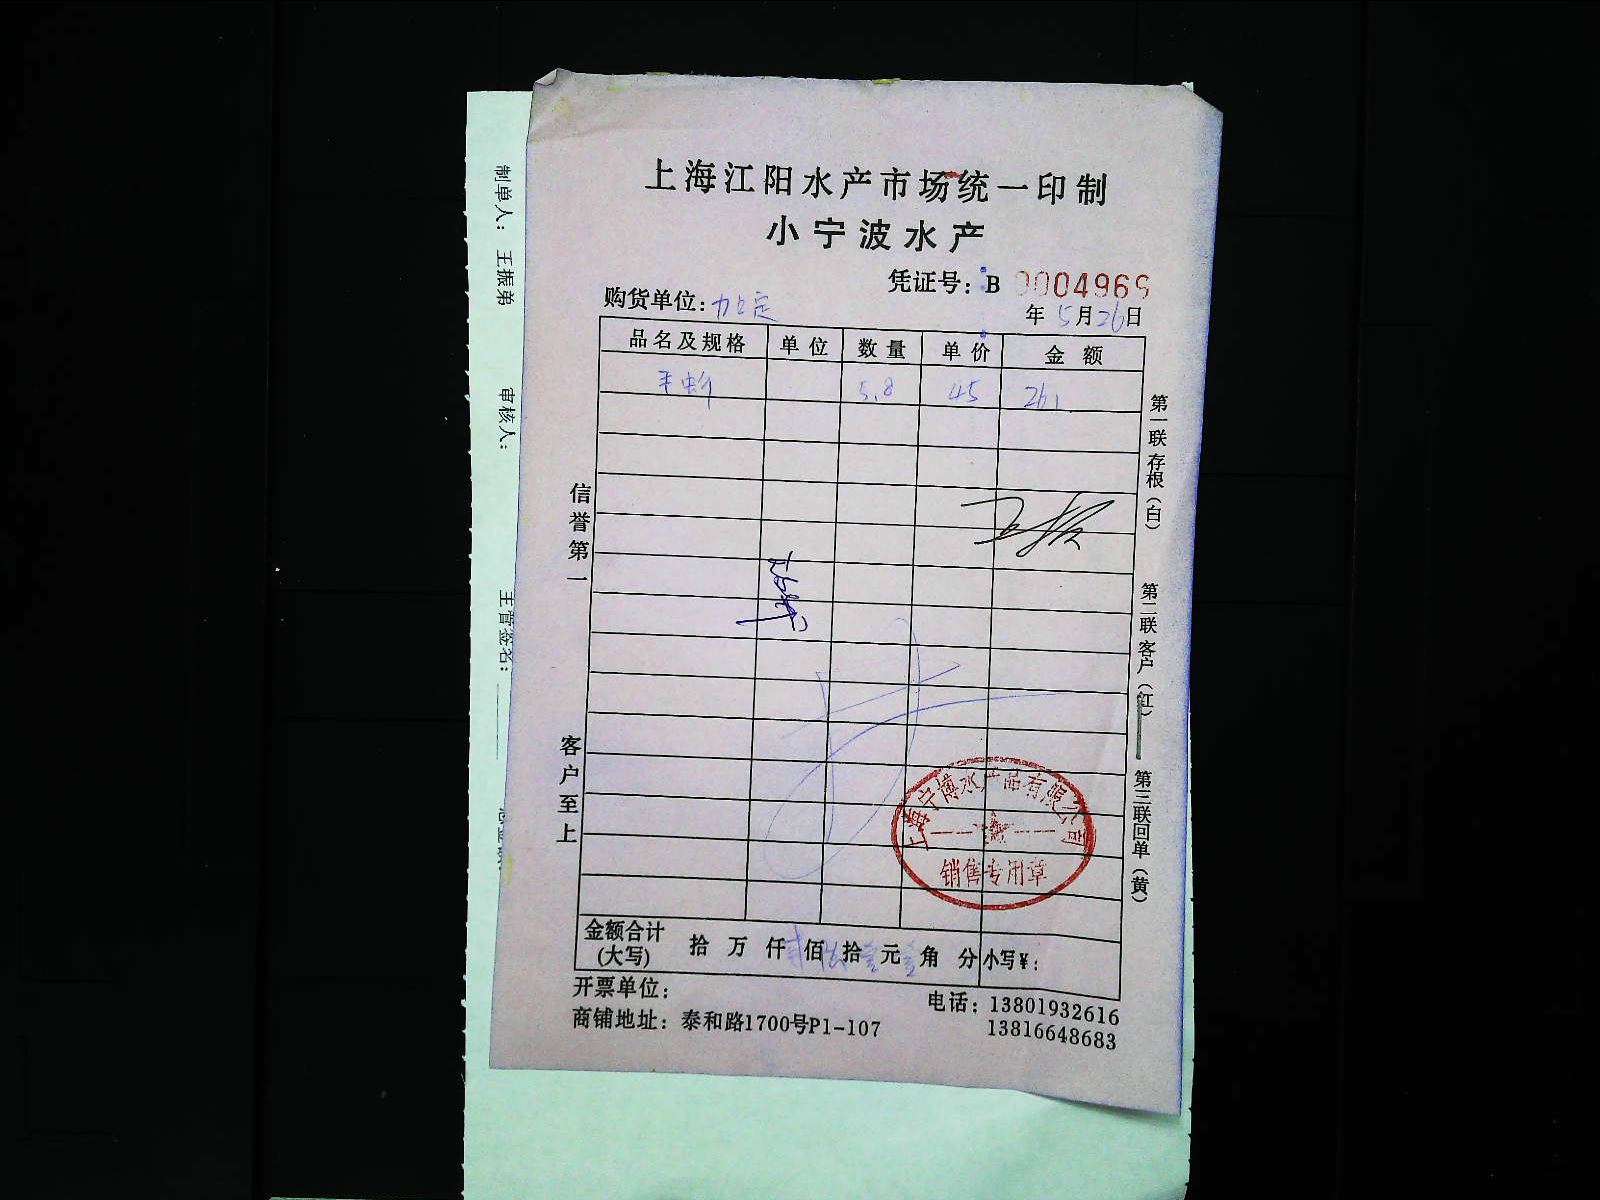 上海江阳水产市场统一印制
小宁波水产
凭证号：B 0004969
购货单位：加定
年 5月26日
品名及规格 单位 数量 单价 金额
5.8 45 261
信誉第一
客户至上
第一联 存根（白）
第二联 客户（红）
第三联 回单（黄）
上海宁博水产品有限公司
销售专用章
金额合计（大写） 拾 万 仟 佰 拾 元 角 分 小写¥：
开票单位：
电话：13801932616
13816648683
商铺地址：泰和路1700号P1-107
制单人：王振弟
审核人：
主管签名：